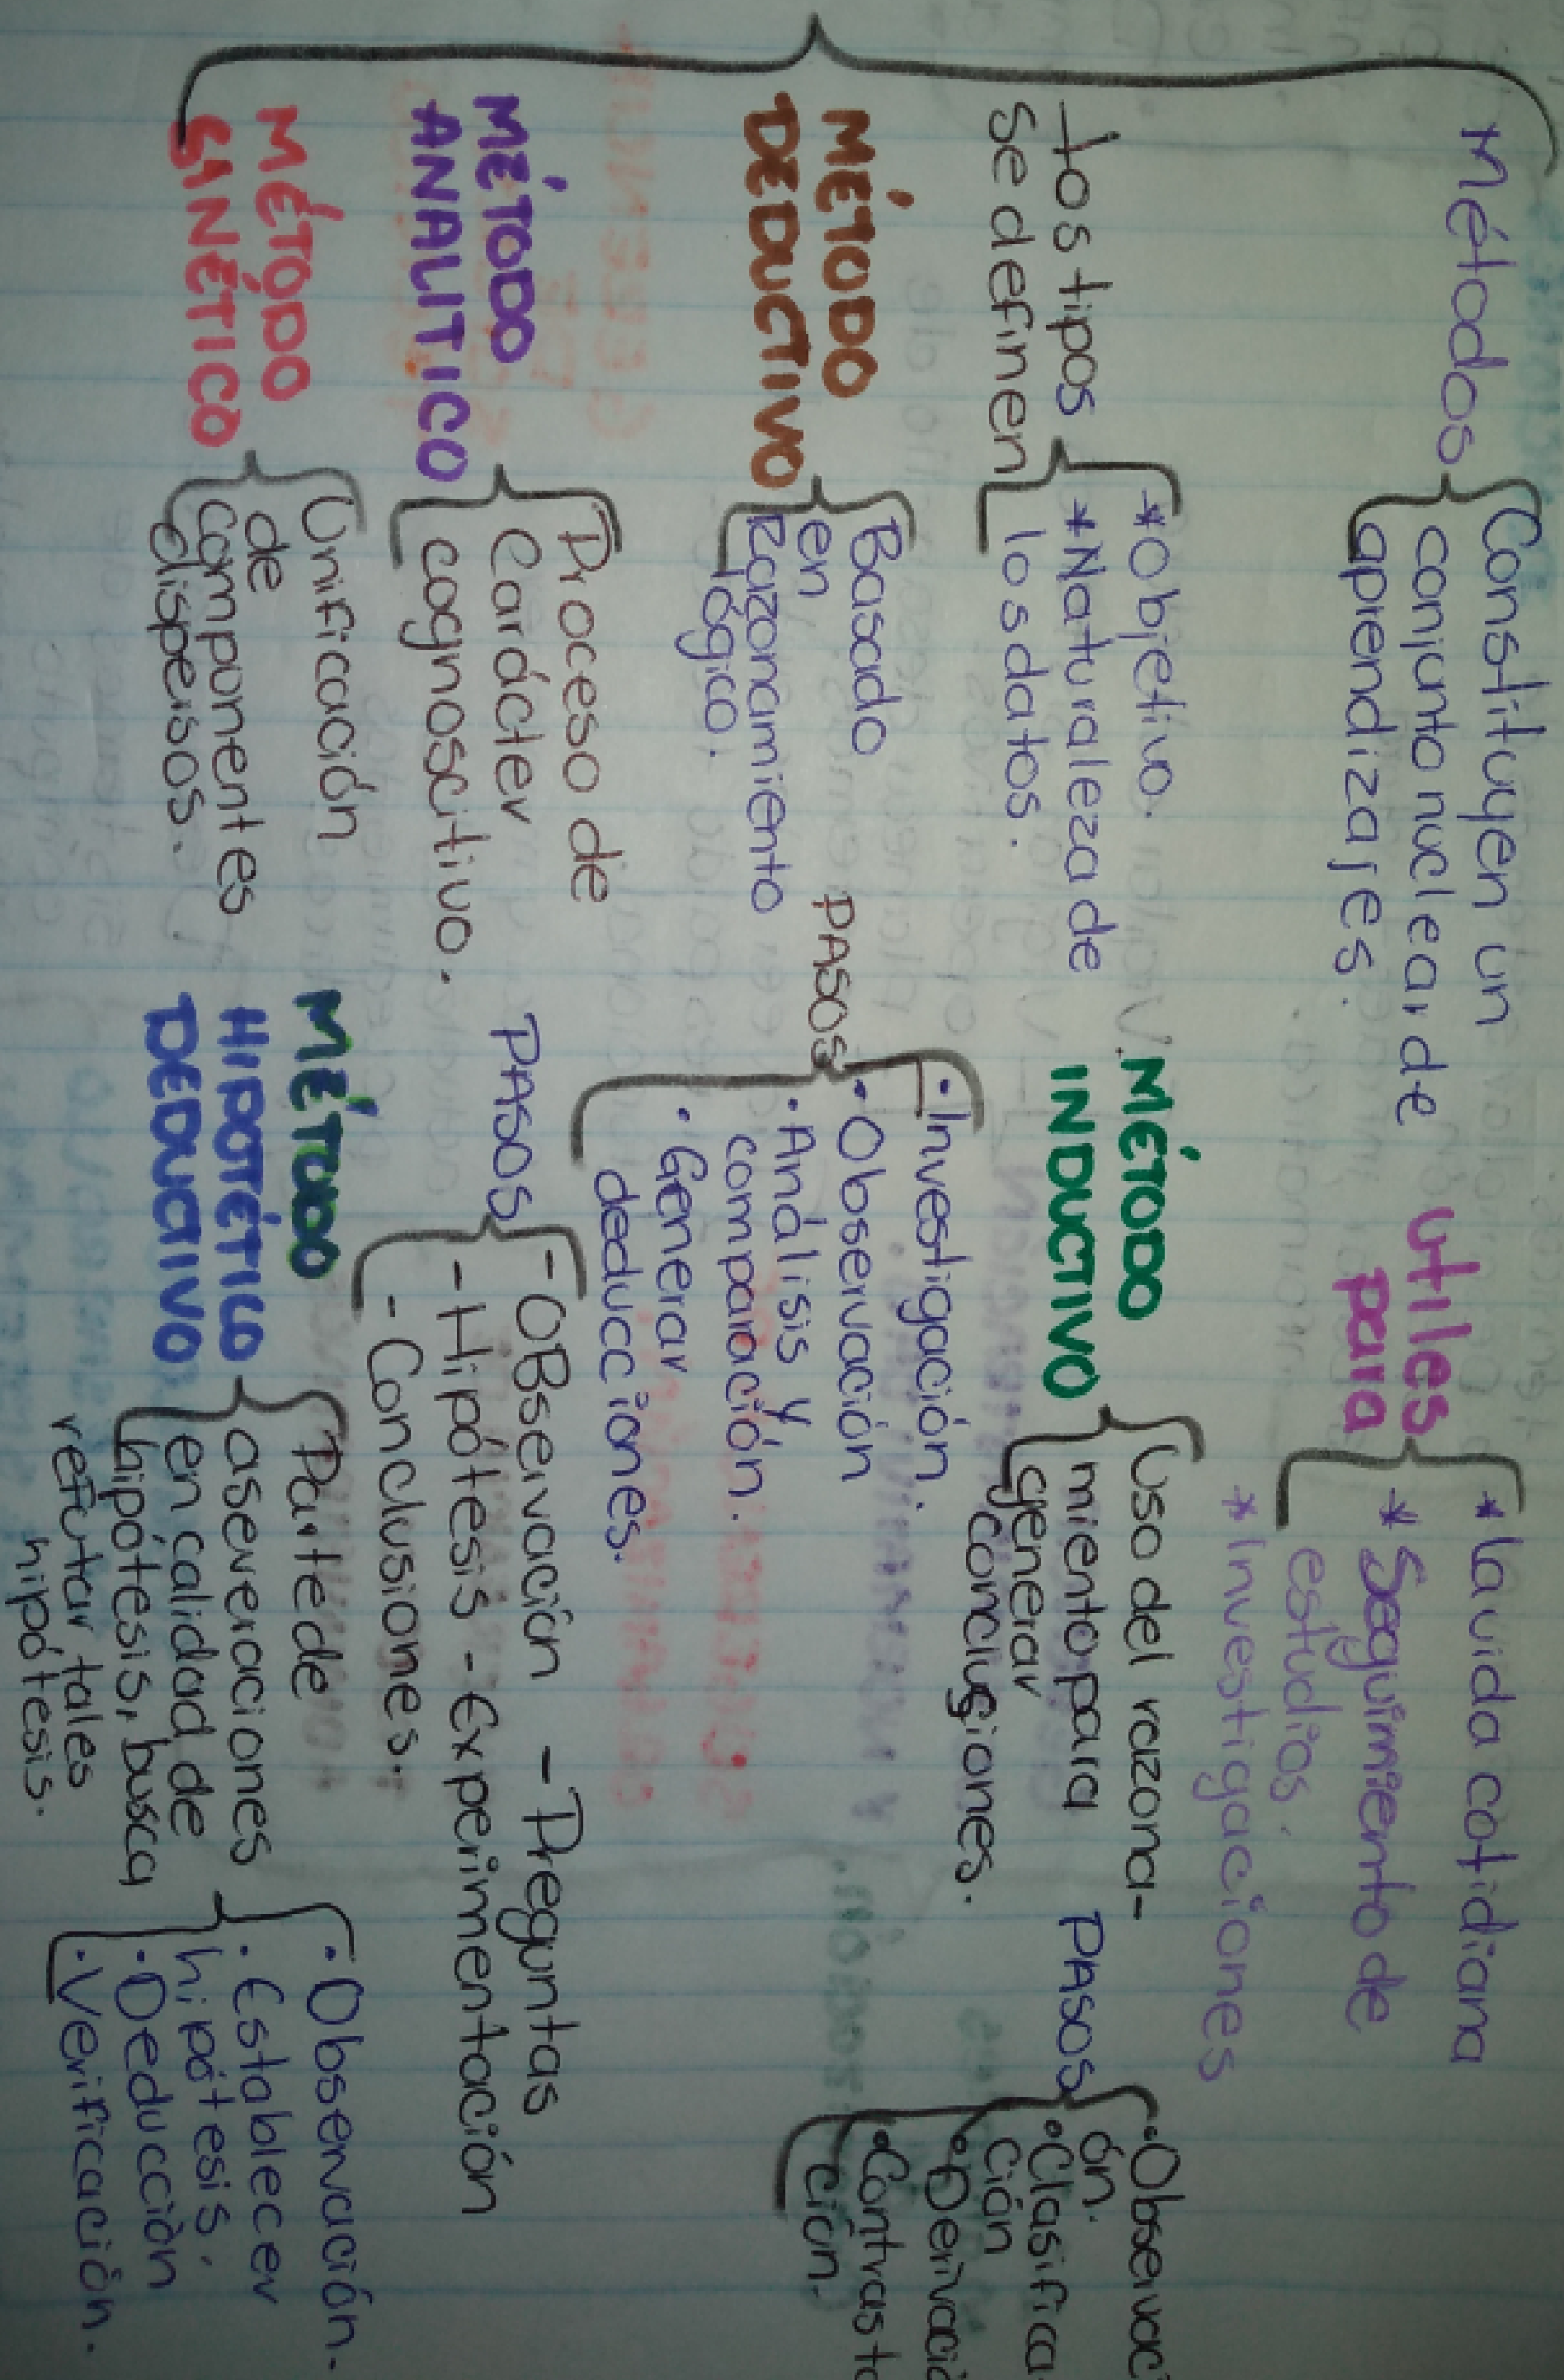 Métodos
Constituyen un
conjunto nuclear de
aprendizajes.
Utiles
para
* la vida cotidiana
* Seguimiento de
estudios.
* Investigaciones
Los tipos
se definen
* Objetivo.
* Naturaleza de
los datos.
MÉTODO
INDUCTIVO
Uso del razona-
miento para
generar
conclusiones.
PASOS
• Observaci
ón.
• Clasifica
ción
• Derivació
• Contrasta
ción.
MÉTODO
DEDUCTIVO
Basado
en
Razonamiento
lógico.
PASOS
• Investigación.
• Observación
• Análisis y
comparación.
• Generar
deducciones.
MÉTODO
ANALITICO
Proceso de
Carácter
cognoscitivo.
PASOS
- Observación - Preguntas
- Hipótesis - Experimentación
- Conclusiones.
MÉTODO
SINÉTICO
Unificación
de
componentes
dispersos.
MÉTODO
HIPOTÉTICO
DEDUCTIVO
Parte de
aseveraciones
en calidad de
hipótesis, busca
refutar tales
hipótesis.
• Observación.
• Establecer
hipótesis.
• Deducción
• Verificación.